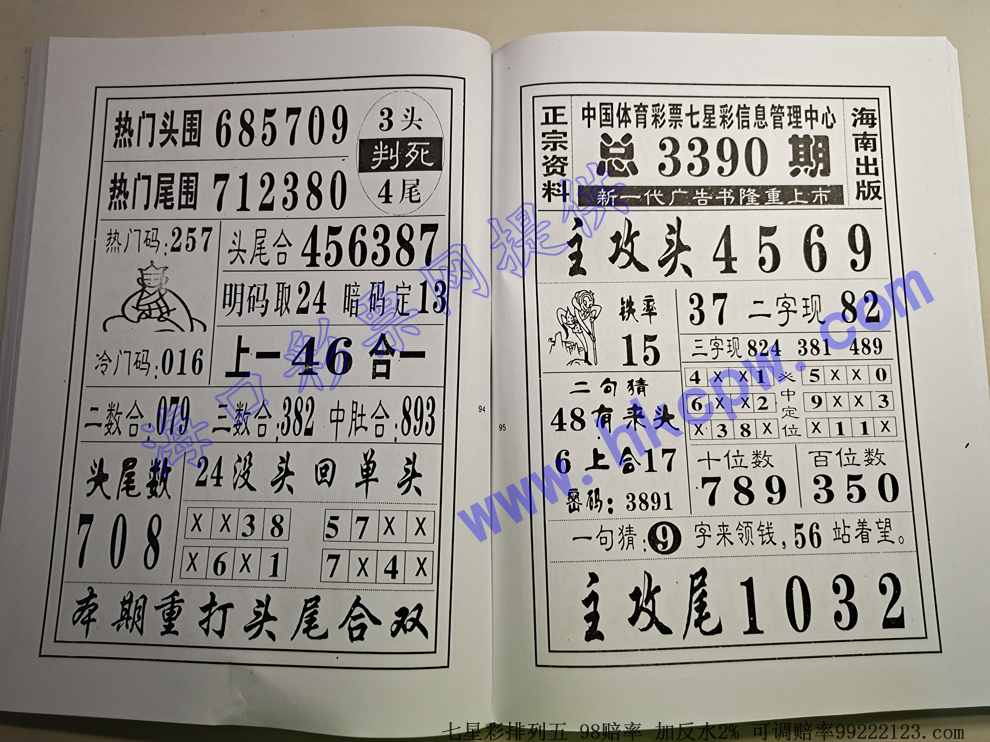 热门头围 685709
3头
判死
4尾
热门尾围 712380
热门码:257
头尾合 456387
明码取24 暗码定13
冷门码:016
上一46合一
二数合:079 三数合:382 中肚合:893
头尾数
24没头回单头
708
X X 3 8
5 7 X X
X 6 X 1
7 X 4 X
本期重打头尾合双
94
95
正宗资料
中国体育彩票七星彩信息管理中心
总 3390 期
新一代广告书隆重上市
海南出版
主攻头4569
铁率
15
37 二字现 82
三字现 824 381 489
4 X X 1
5 X X 0
6 X X 2
9 X X 3
X 3 8 X
X 1 1 X
中定位
二句猜
48有来头
6上合17
密码:3891
十位数
789
百位数
350
一句猜:9字来领钱,56站着望。
主攻尾1032
海口彩票网提供
www.hkcpw.com
七星彩排列五 98赔率 加反水2% 可调赔率99222123.com